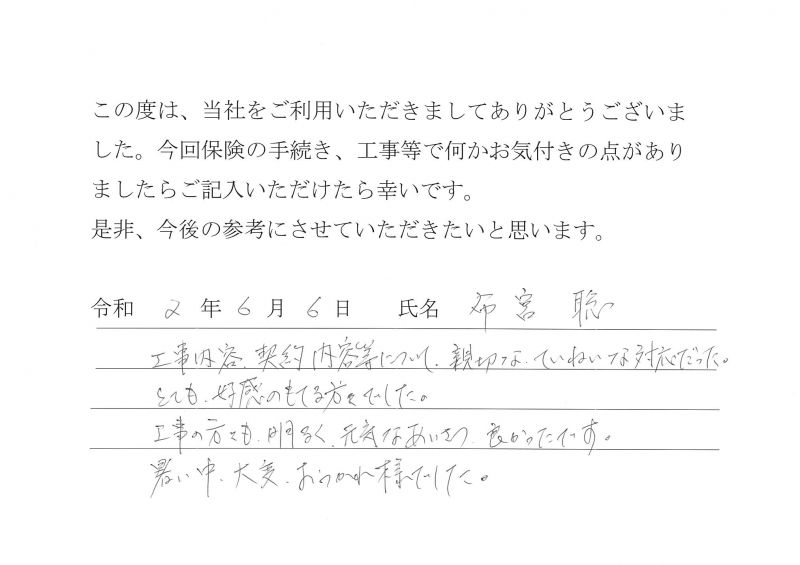 この度は、当社をご利用いただきましてありがとうございま
した。今回保険の手続き、工事等で何かお気付きの点があり
ましたらご記入いただけたら幸いです。
是非、今後の参考にさせていただきたいと思います。
令和 2 年 6 月 6 日 氏名 布宮 聡
工事内容、契約内容等について、親切な、ていねいな対応だった。
とても、好感のもてる方々でした。
工事の方々も、明るく、元気なあいさつ、良かったです。
暑い中、大変、おつかれ様でした。